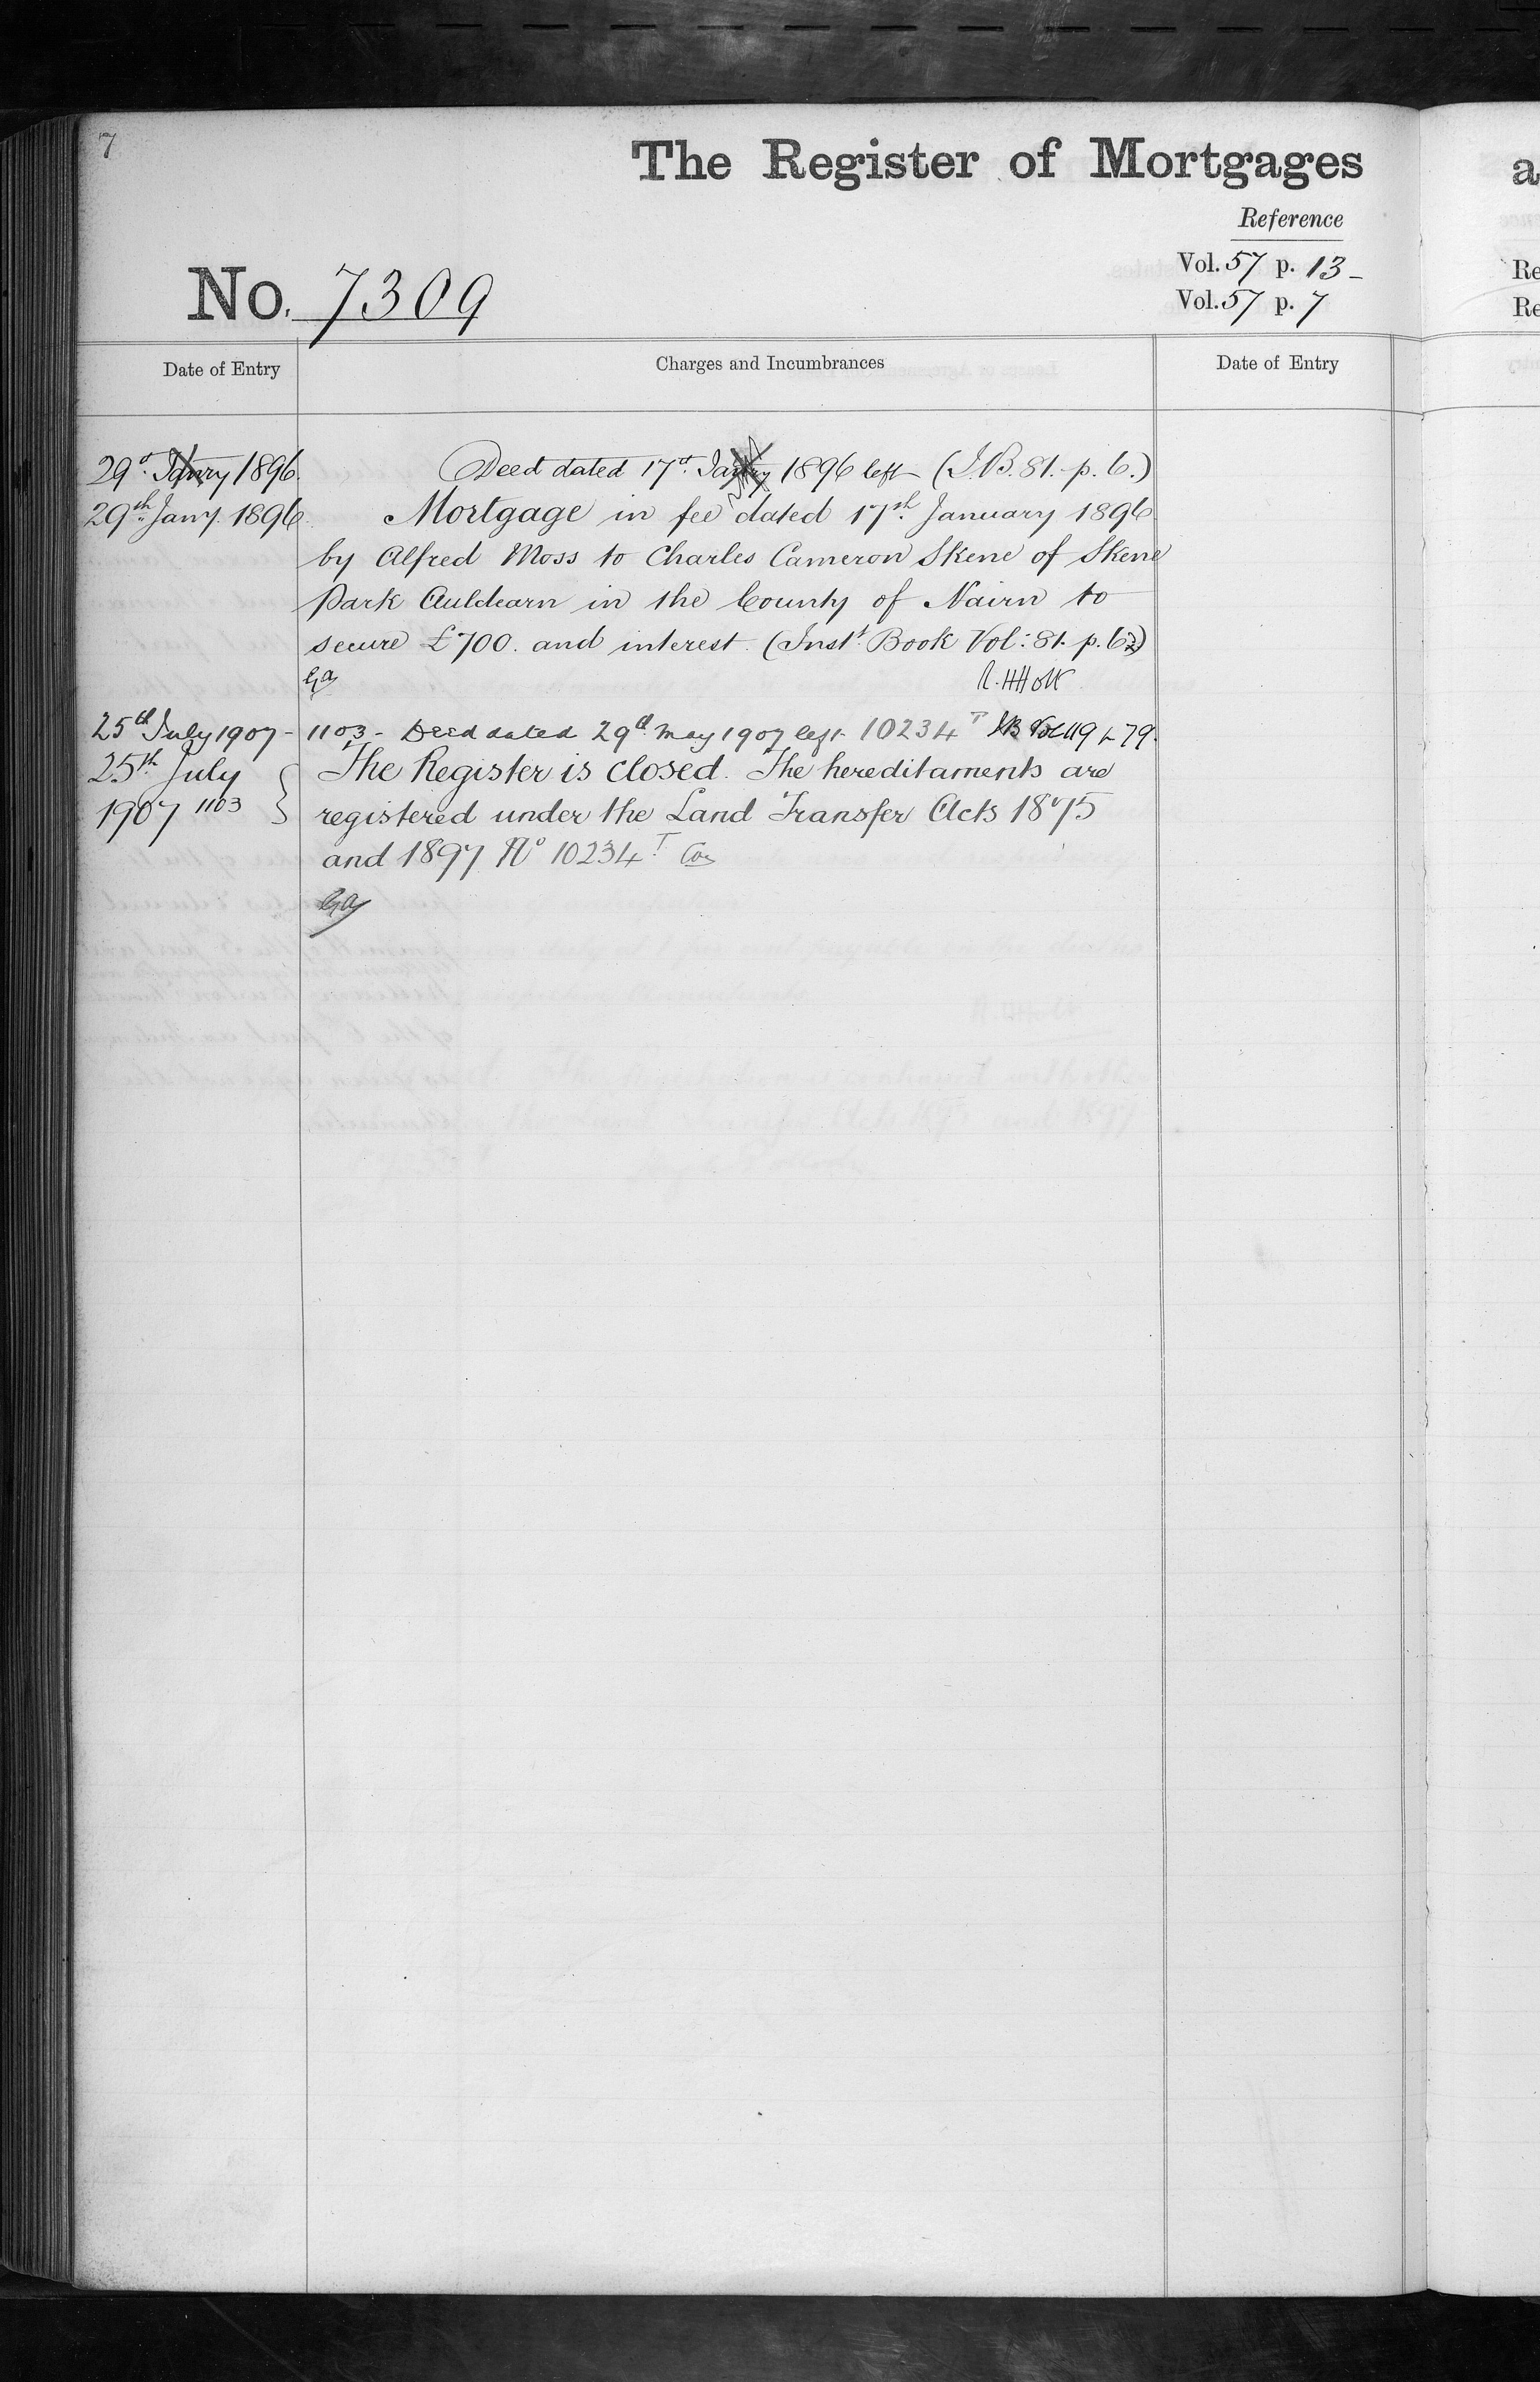 7
The Register of Mortgages
Reference
Vol. 57 p. 13 -
Vol. 57 p. 7
No. 7309
Date of Entry
Charges and Incumbrances
Date of Entry
29th Janry 1896.
Deed dated 17th Janry 1896 left (I.B. 81. p. 6.)
29th Jany. 1896
Mortgage in fee dated 17th January 1896
by Alfred Moss to Charles Cameron Skene of Skene
Park Auldearn in the County of Nairn to
secure £700. and interest. (Inst. Book Vol: 81. p. 62)
R. H Holt
25th July 1907 -
1103 - Deed dated 29th May 1907 left 10234 T IB Vol 119 p 79.
25th July
1907 1103
The Register is closed. The hereditaments are
registered under the Land Transfer Acts 1875
and 1897 No 10234 T
a
Re
Re